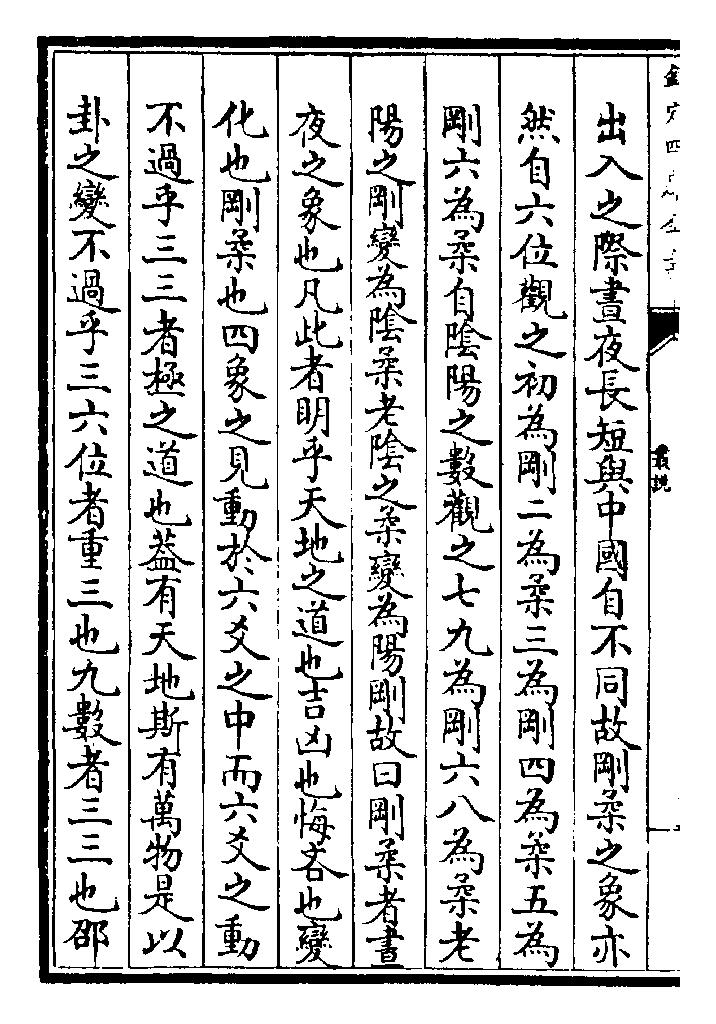 出入之際晝夜長短與中國自不同故剛柔之象亦
然自六位觀之初為剛二為柔三為剛四為柔五為
剛六為柔自陰陽之數觀之七九為剛六八為柔老
陽之剛變為陰柔老陰之柔變為陽剛故曰剛柔者晝
夜之象也凡此者明乎天地之道也吉凶也悔吝也變
化也剛柔也四象之見動於六爻之中而六爻之動
不過乎三三者極之道也葢有天地斯有萬物是以
卦之變不過乎三六位者重三也九數者三三也邵
叢説